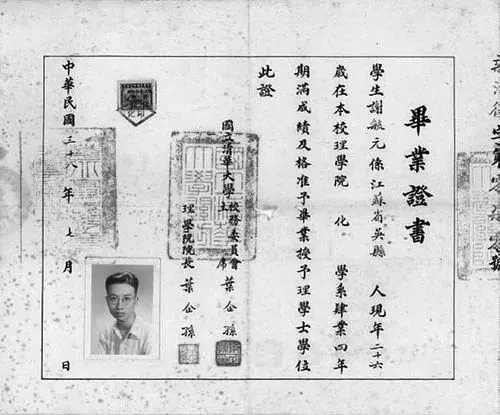 畢業證書
學生謝毓元係江蘇省吳縣人現年二十六
歲在本校理學院化學系肄業四年
期滿成績及格准予畢業授予理學士學位
此證
國立清華大學校務委員會主席葉企孫
理學院院長葉企孫
中華民國三十八年七月日